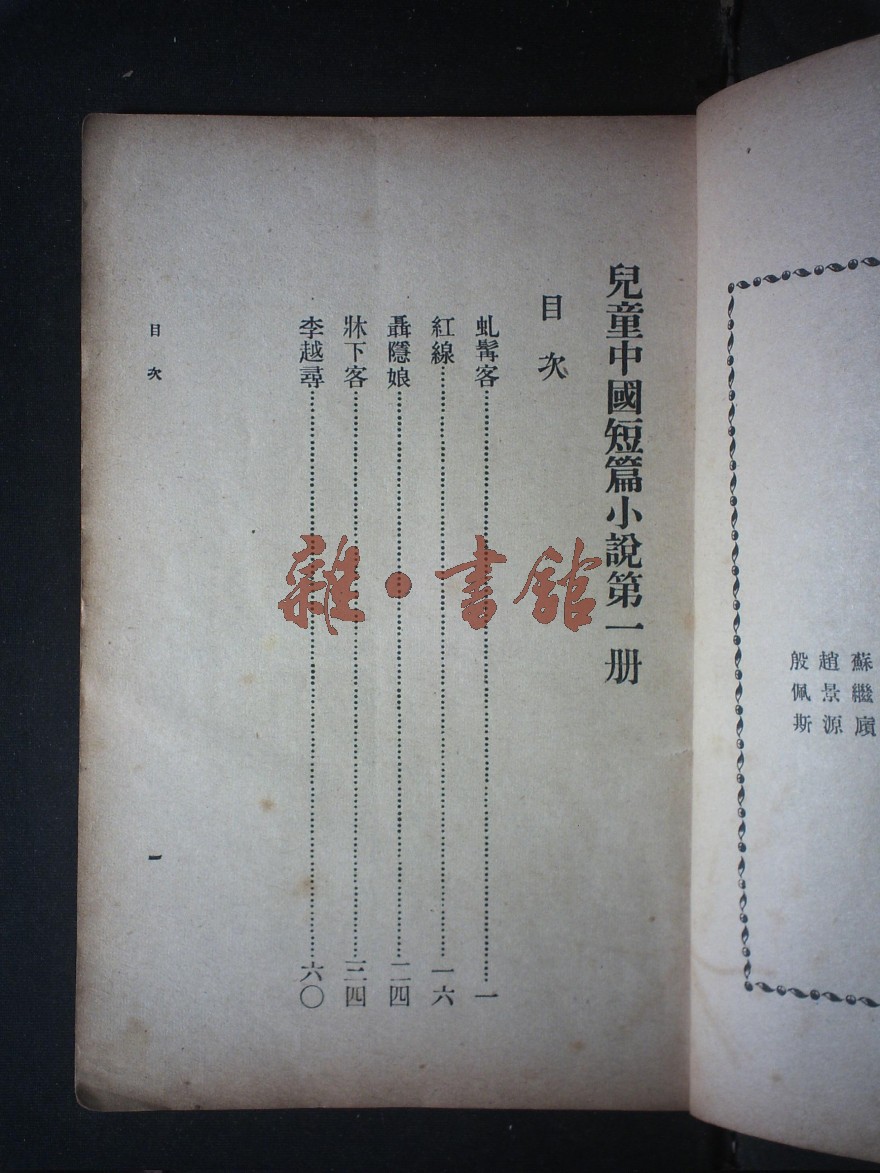 蘇繼廎
趙景源
殷佩斯
兒童中國短篇小說第一册
目次
虬髯客……一
紅線……一六
聶隱娘……二四
牀下客……三四
李越尋……六〇
目次
一
雜·書館